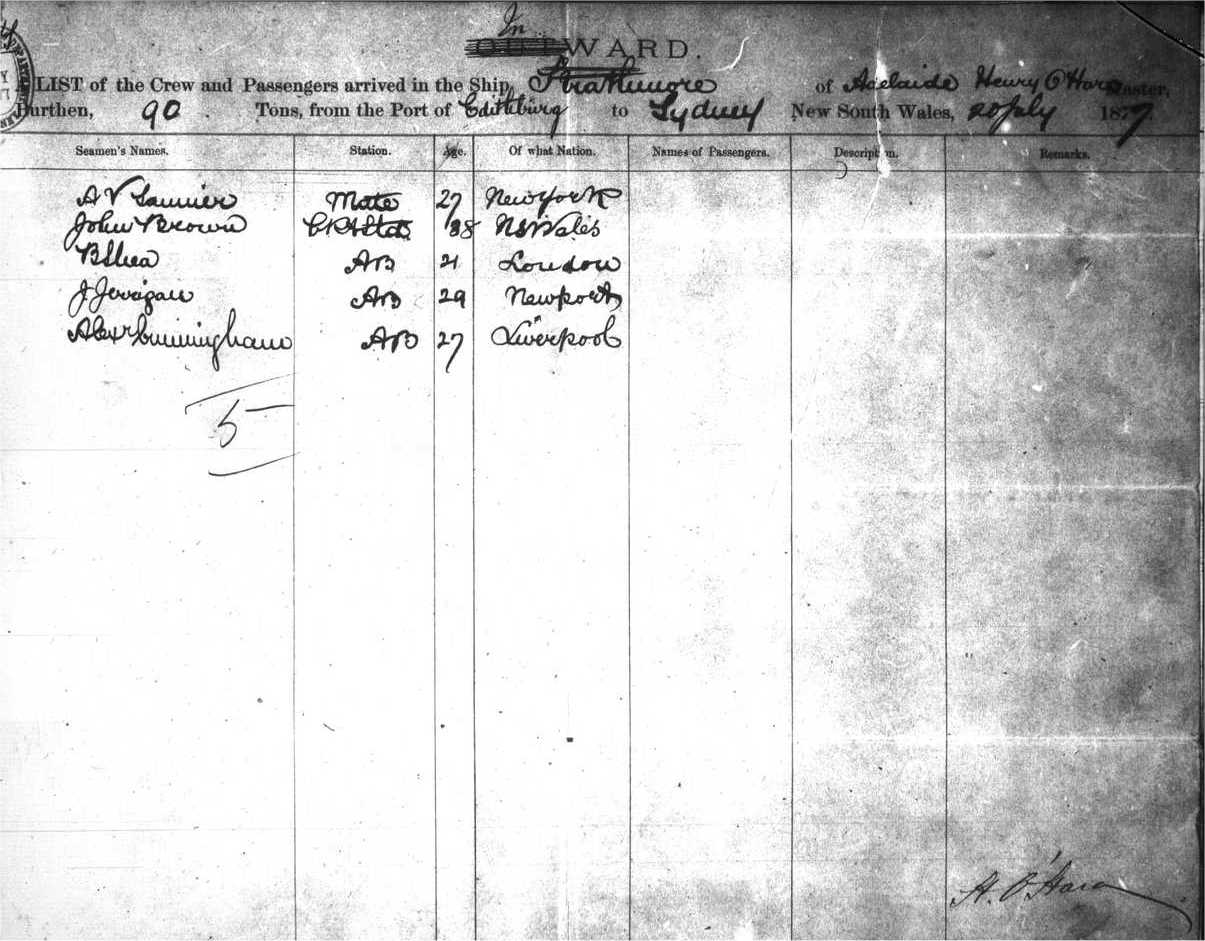 In
OUTWARD.
A LIST of the Crew and Passengers arrived in the Ship Strathmore of Adelaide Henry O'Hara Master,
Burthen, 90 Tons, from the Port of Edithburg to Sydney New South Wales, 20 July 1877.
Seamen's Names. Station. Age. Of what Nation. Names of Passengers. Description. Remarks.
A V Mate 27 New york
John Brown 38 N S Wales
B Shea AB 21 London
J Jerrigan AB 29 Newport
Alexr Cunningham AB 27 Liverpool
5
H. O'Hara